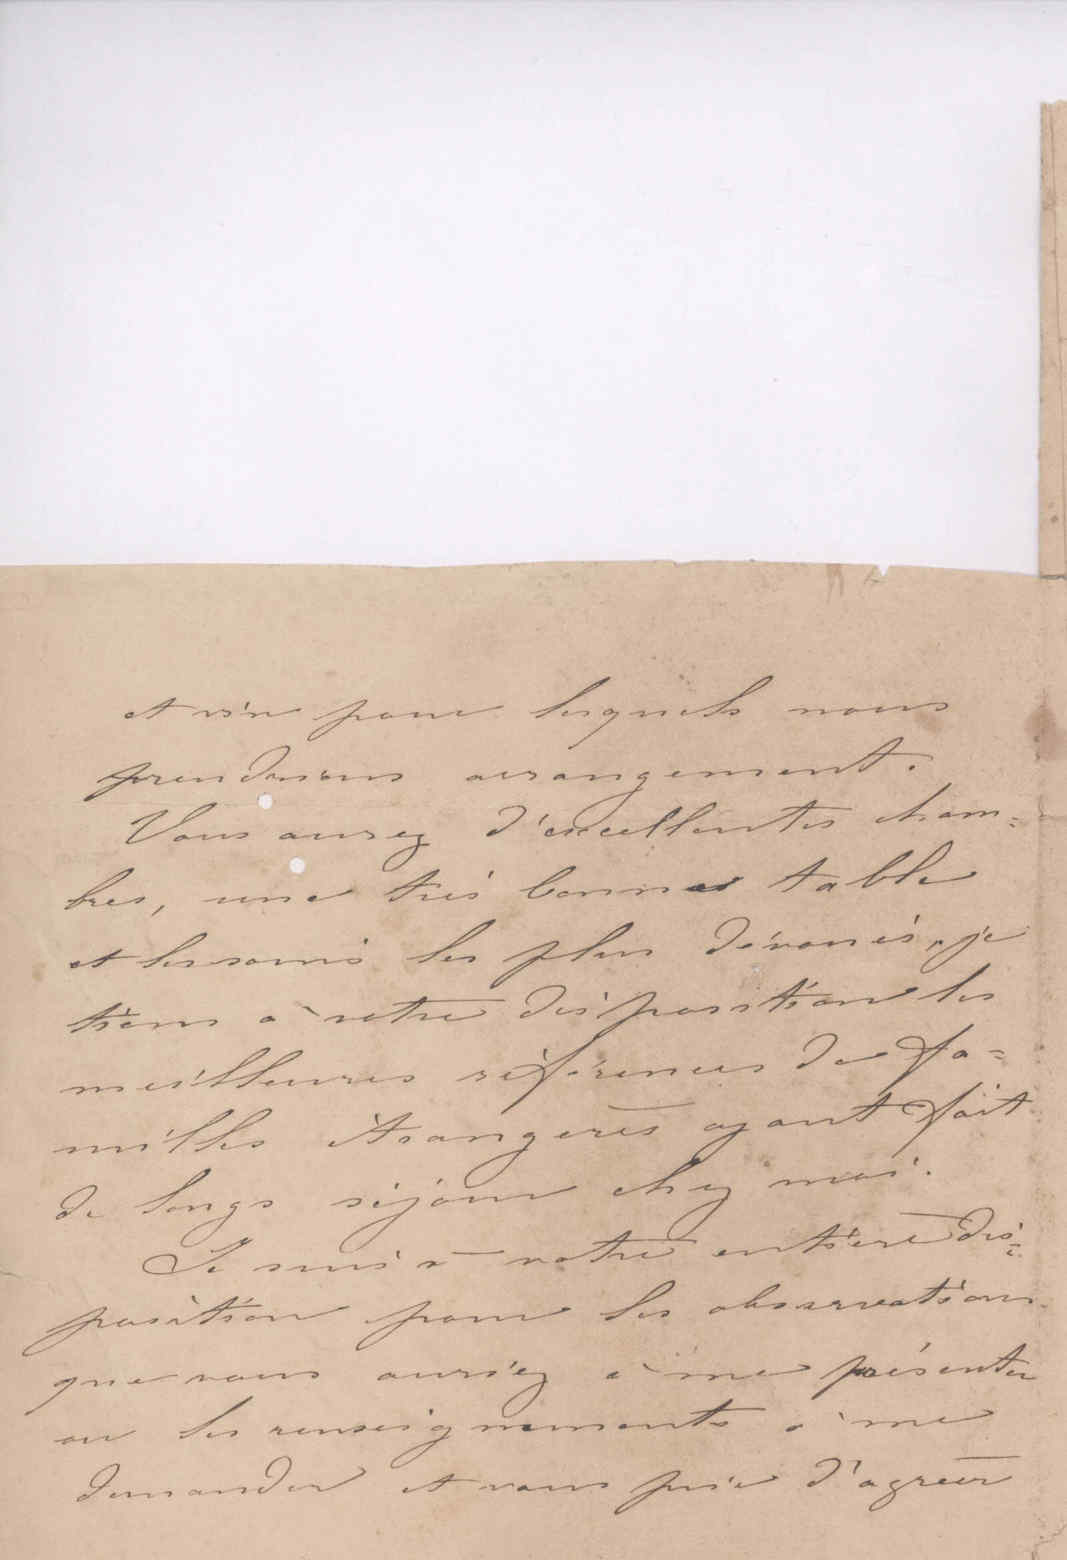 et vin pour lesquels nous
prendrons arrangement.
Vous aurez d'excellentes cham=
bres, une très bonne table
et les soins les plus dévoués, je
tiens à votre disposition les
meilleures références de fa=
milles étrangères ayant fait
de longs séjour chez moi.
Je suis à votre entière dis=
position pour les observations
que vous auriez à me présenter
ou les renseignements à me
demander et vous prie d'agréer